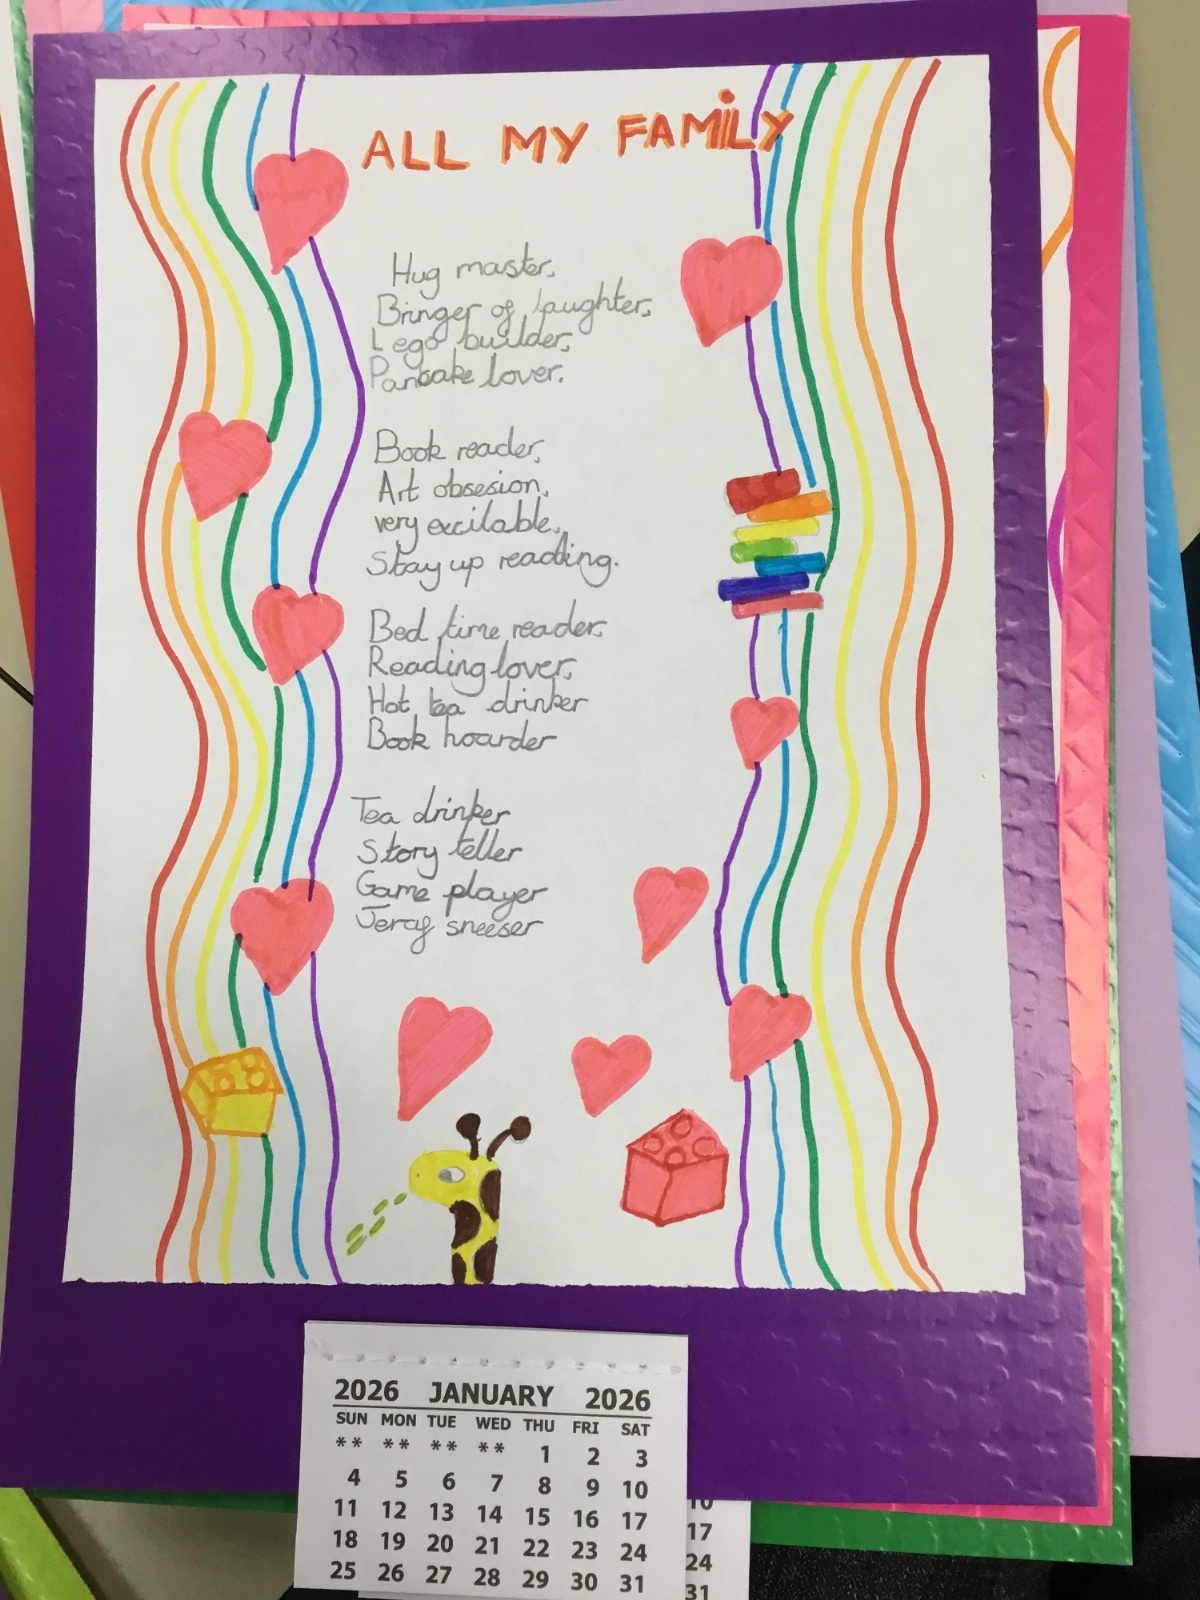 ALL MY FAMILY
Hug master,
Bringer of laughter,
Lego builder,
Pancake lover.
Book reader,
Art obsesion,
very excilable,
Stay up reading.
Bed time reader,
Reading lover,
Hot tea drinker
Book hoarder
Tea drinker
Story teller
Game player
sneeser
2026 JANUARY 2026
SUN MON TUE WED THU FRI SAT
** ** ** ** 1 2 3
4 5 6 7 8 9 10
11 12 13 14 15 16 17
18 19 20 21 22 23 24
25 26 27 28 29 30 31
10
17
24
31